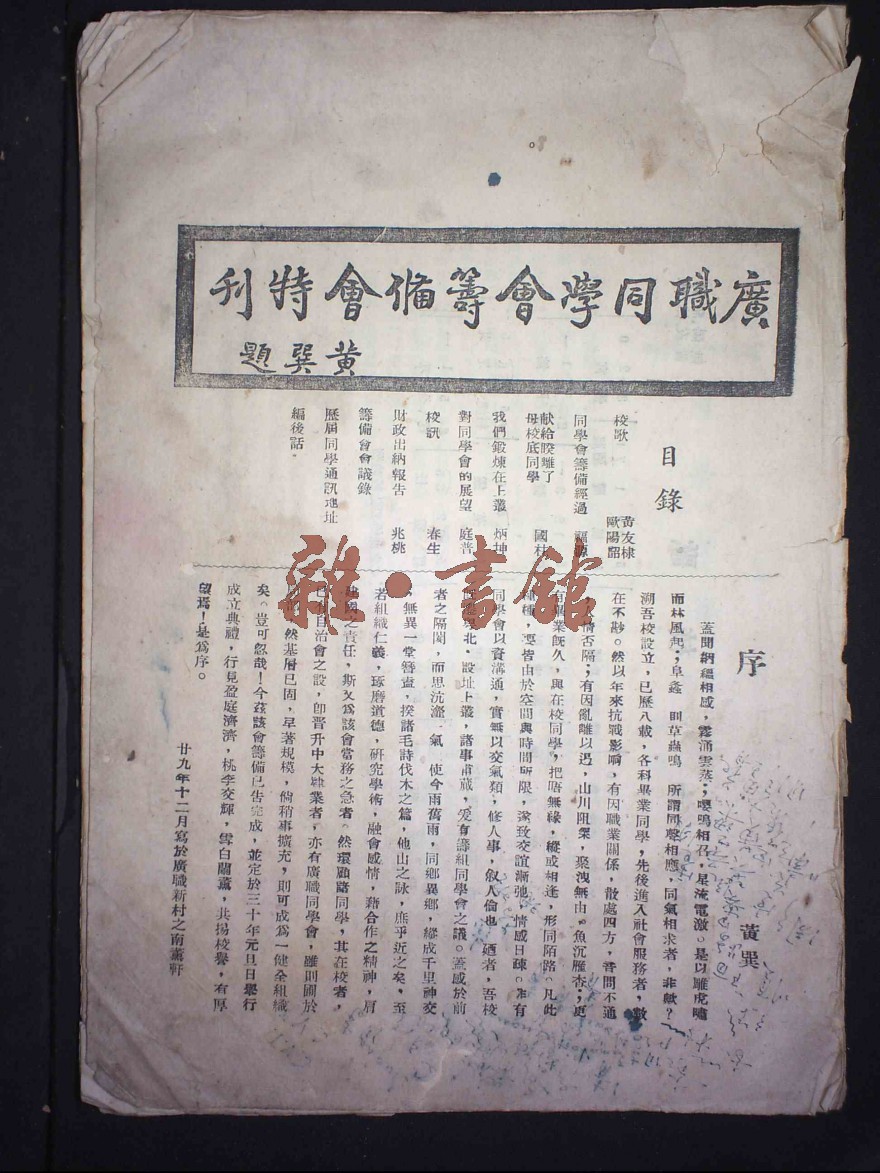 廣職同學會籌備會特刊
黃巽題
目錄
校歌 黃友棣
歐陽韶
同學會籌備經過
献給暌離了
母校底同學 國材
我們鍛煉在上叢 炳坤
對同學會的展望 庭普
校訊 春生
財政出納報告 兆桃
籌備會會議錄
歷屆同學通訊地址
編後話
序
黃巽
蓋聞絪縕相感,霧涌雲蒸;嚶鳴相召,星流電激。是以雖虎嘯
而林風起;阜螽 草蟲鳴 所謂同聲相應 同氣相求者,非歟?
溯吾校設立,已歷八載,各科畢業同學,先後進入社會服務者,數
在不尠。然以年來抗戰影响,有因職業關係,散處四方,音問不通
人情否隔;有因亂離以還,山川阻梁,聚洩無由。魚沉雁杳;更
有畢業旣久,與在校同學,把唔無緣,縱或相逢,形同陌路。凡此
種種,要皆由於空間與時間所限,遂致交誼漸弛,情感日疎。非有
同學會以資溝通,實無以交氣類,修人事,叙人倫也。廼者,吾校
北,設址上叢,諸事甫蕆,爰有籌組同學會之議。蓋感於前
者之隔閡,而思沆瀣一氣 使今雨舊雨,同鄉異鄉,縱成千里神交
,無異一堂簪盍,揆諸毛詩伐木之篇,他山之詠,庶乎近之矣,至
若組織仁義,琢磨道德,研究學術,融會感情,藉合作之精神,肩
建國之責任,斯又爲該會當務之急者。然環顧諸同學,其在校者,
已有自治會之設,卽晋升中大肄業者,亦有廣職同學會,雖則囿於
然基層已固,早著規模,倘稍事擴充,則可成爲一健全組織
矣。豈可忽哉!今茲該會籌備已告完成,並定於三十年元旦日舉行
成立典禮,行見盈庭濟濟,桃李交輝,雪白蘭薰,共揚校譽,有厚
望焉!是爲序。
廿九年十二月寫於廣職新村之南薰軒
雜·書館